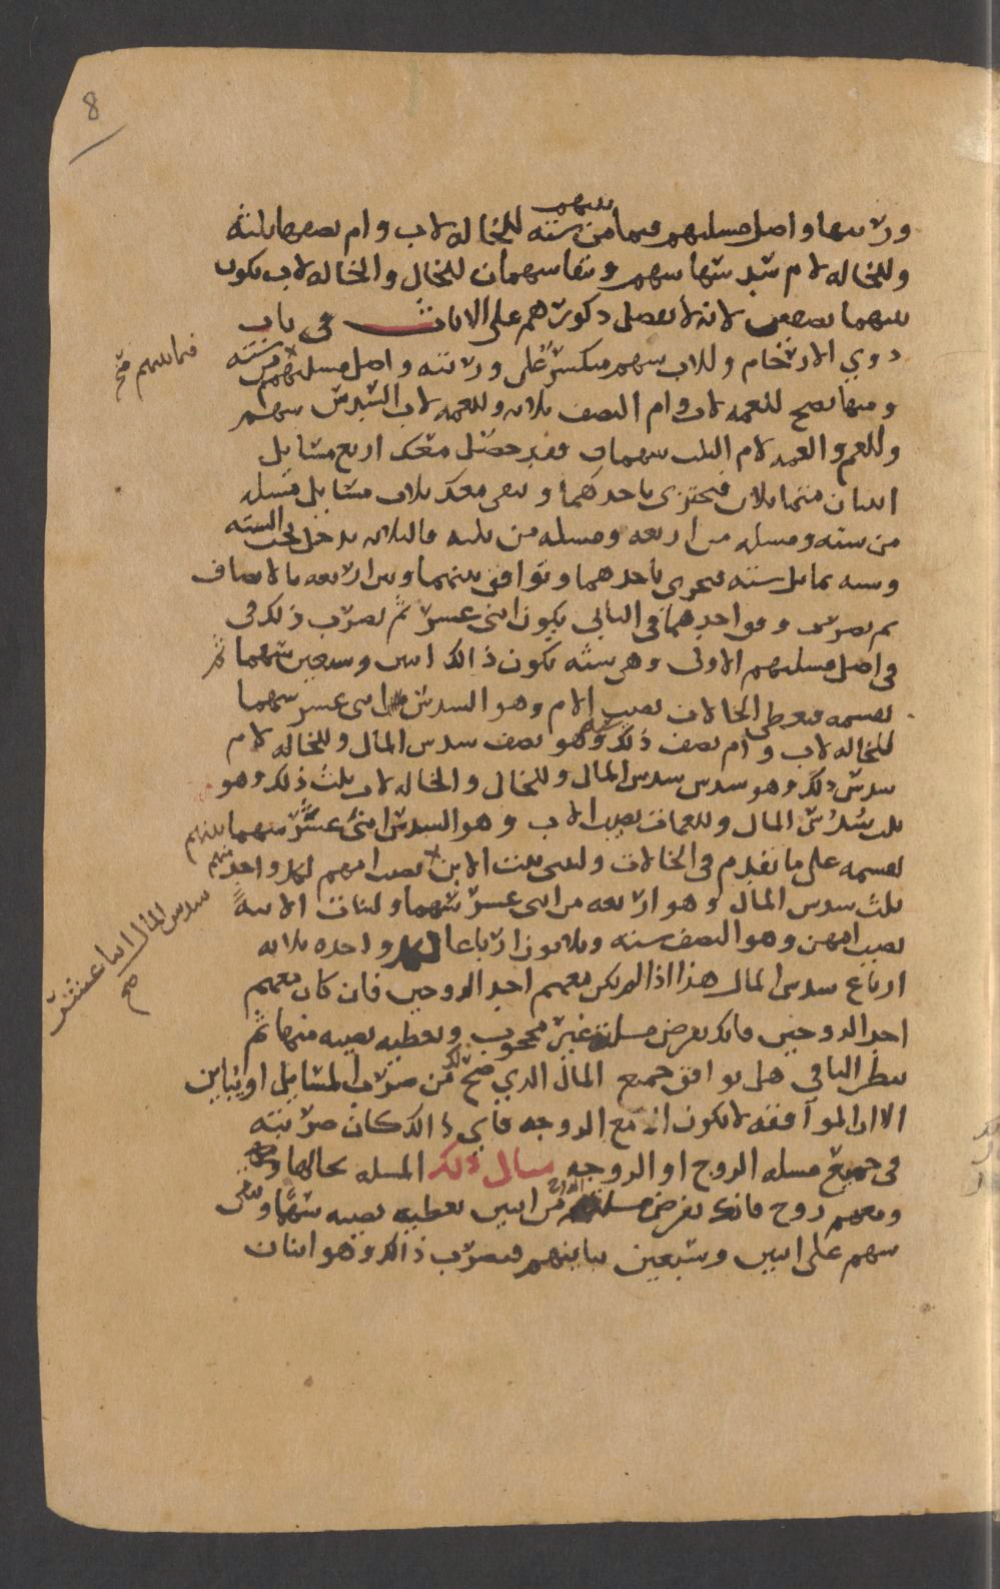 8
ورثتها واصل مسلتهم فيما بينهم من سته للخاله لاب وام نصفها ثلثه
وللخاله لام سدسها سهم وبقا سهمان للخال والخاله لاب يكون
بينهما نصفين لانه لا يفضل ذكورهم على الاناث في باب
ذوي الارحام وللاب سهم منكسر على ورثته واصل مسلتهم من سته
فيما بينهم صح
ومنها تصح للعمه لاب وام النصف ثلاثه وللعمه لاب السدس سهم
وللعم والعمه لام الثلث سهمان فقد حصل معك اربع مسايل
اثنتان متماثلان فتجتزي باحدهما وبقي معك ثلاث مسايل مسله
من سته ومسله من اربعه ومسله من ثلثه فالثلاثه تدخل تحت السته
وسته تماثل سته فتجزي باحدهما وتوافق بينهما وبين الاربعه بالانصاف
ثم تضرب وفق احدهما في الثاني يكون اثنى عشر ثم تضرب ذلك في
في اصل مسلتهم الاولى وهي سته يكون ذالك اثنين وسبعين سهما ثم
تقسمه فتعطي الخالات نصيب الام وهو السدس اثنى عشر سهما
للخاله لاب وام نصف ذلك سته وهو نصف سدس المال وللخاله لام
سدس ذلك وهو سدس سدس المال وللخال والخاله لاب ثلث ذلك وهو
ثلث سدس المال وللعمات نصيب الاب وهو السدس اثنى عشر سهما بينهم
تقسمه على ما تقدم في الخالات ولبني بنت الابن نصيب امهم لكل واحد منهم
سدس المال اثنا عشر صح
ثلث سدس المال وهو اربعه من اثنى عشر سهما ولبنات الابنة
نصيب امهن وهو النصف سته وثلاثون ارباعا لكل واحده ثلاثه
ارباع سدس المال هذا اذا لم يكن معهم احد الزوجين فان كان معهم
احد الزوجين فانك تفرض مسلة غير محجوب وتعطيه نصيبه منها ثم
تنظر الباقي هل يوافق جميع المال الذي صح لك من ضرب المسايل او يباين
الا ان الموافقه لا تكون الا مع الزوجه فاي ذالك كان ضربته
في جميع مسله الزوج او الزوجه مثال ذلك المسله بحالها
ومعهم زوج فانك تفرض مسلة الزوج من اثنين تعطيه نصيبه سهما وبقي
سهم على اثنين وسبعين يباينهم فتضرب ذالك وهو اثنان